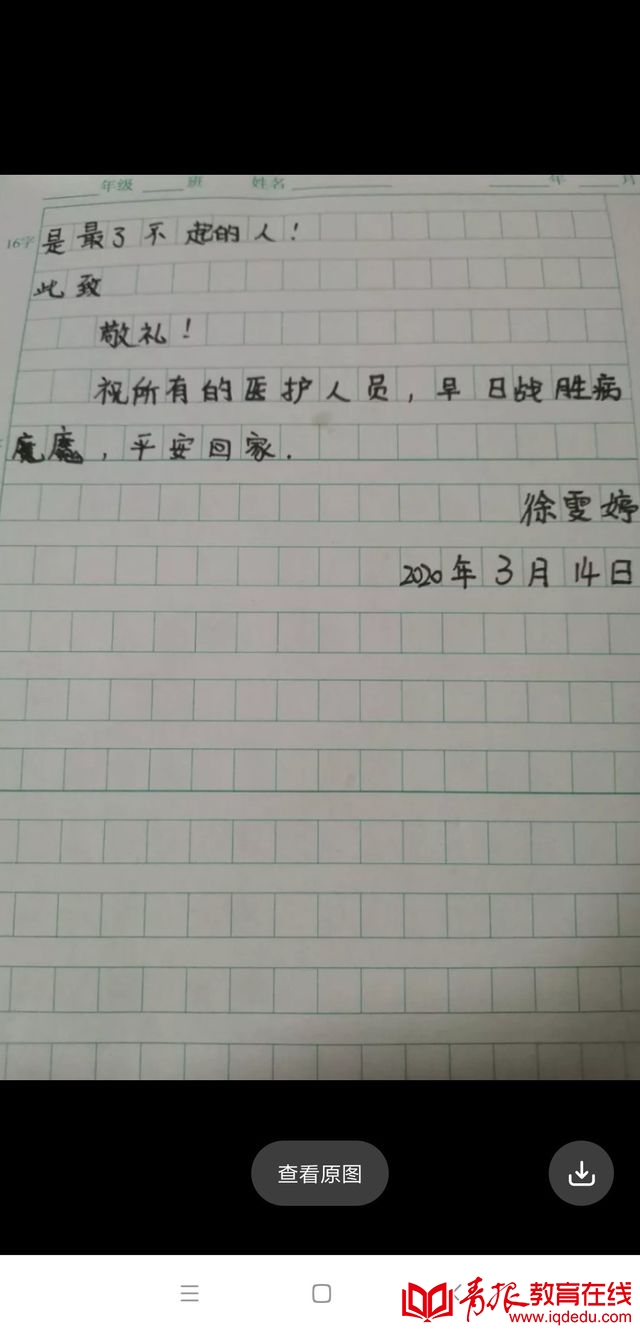 年级 班 姓名 年 月
16字
是最了不起的人！
此致
敬礼！
祝所有的医护人员，早日战胜病
魔魔，平安回家．
徐雯婷
2020年3月14日
查看原图
青报教育在线
www.iqdedu.com